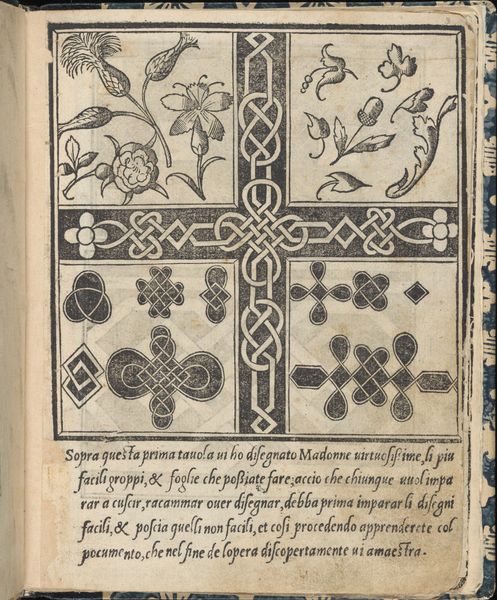 Sopra questa prima tauola ui ho disegnato Madonne uirtuosissime, li piu
facili groppi, & foglie che poßiate fare; accio che chiunque uuol impa
rar a cuscir, racammar ouer disegnar, debba prima imparar li disegni
facili, & poscia quelli non facili, et cosi procedendo apprenderete col
documento, che nel fine de lopera discopertamente ui amaestra.